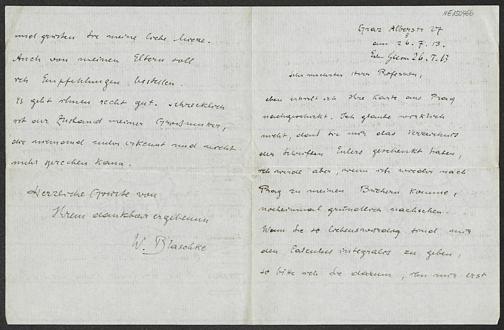 Graz Alberstr 27
am 26. 7. 13.
26. 7. 13
Sehr verehrter Herr Professor,
eben wurde ich Ihre Karte aus Prag
nachgeschickt. Ich glaube wirklich
nicht, dass Sie mir das Verzeichnis
der Schriften Eulers geschenkt haben,
ich werde aber, wenn ich wieder nach
Prag zu meinen Büchern komme,
nocheinmal gründlich nachsehen.
Wenn Sie so liebenswürdig sind mir
den Calculus integralis zu geben,
so bitte ich Sie darum, ihn mir erst
und grüssen Sie meine liebe
Auch von meinen Eltern soll
ich Empfehlungen bestellen.
Es geht ihnen recht gut. Schrecklich
ist der Zustand meiner Grossmutter,
die niemand mehr erkennt und nicht
mehr sprechen kann.
Herzliche Grüsse von
Ihrem dankbar ergebenen
W. Blaschke